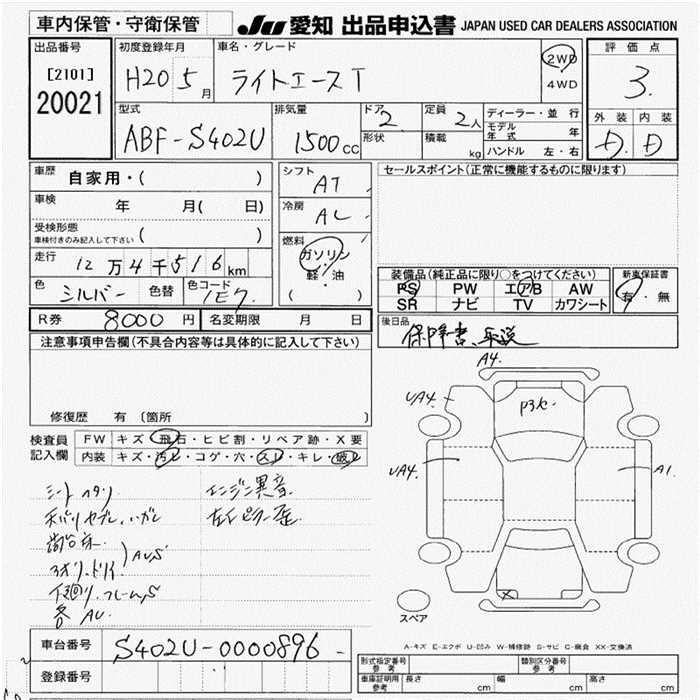 車内保管・守衛保管
JU 愛知 出品申込書 JAPAN USED CAR DEALERS ASSOCIATION
出品番号
[2101]
20021
初度登録年月
H20 5 月
車名・グレード
ライトエースT
2WD
4WD
評価点
3.
型式
ABF-S402U
排気量
1500 cc
ドア
2.
形状
定員
2人
積載
kg
ディーラー・並行
モデル年式 年
ハンドル 左・右
外装 内装
D. D
車歴
自家用・( )
車検
年 月( 日)
受検形態
車検付きのみ記入して下さい ( )
走行
12万4千516 km
色
シルバー
色替
色コード
1E7.
シフト
AT
冷房
AC
燃料
ガソリン
・
軽・油
( )
セールスポイント(正常に機能するものに限ります)
装備品(純正品に限り○をつけてください)
PS PW エアB AW
SR ナビ TV カワシート
新車保証書
有・無
R券 8000 円
名変期限 月 日
後日品
保障書、取説
注意事項申告欄(不具合内容等は具体的に記入して下さい)
修復歴 有 (箇所 )
検査員
記入欄
FW キズ・飛石・ヒビ割・リペア跡・X要
内装 キズ・汚レ・コゲ・穴・スレ・キレ・破レ
シートヘタリ
エンジン異音
下廻り、フレームS
各AU
A4.
UA4.
P3セ
UA4.
A1
X
スペア
A-キズ E-エクボ U-凹み W-補修跡 S-サビ C-腐食 XX-交換済
車台番号
S402U-0000896
登録番号
形式指定番号
参考
類別区分番号
参考
車庫証明用
参考
長さ cm
幅 cm
高さ cm